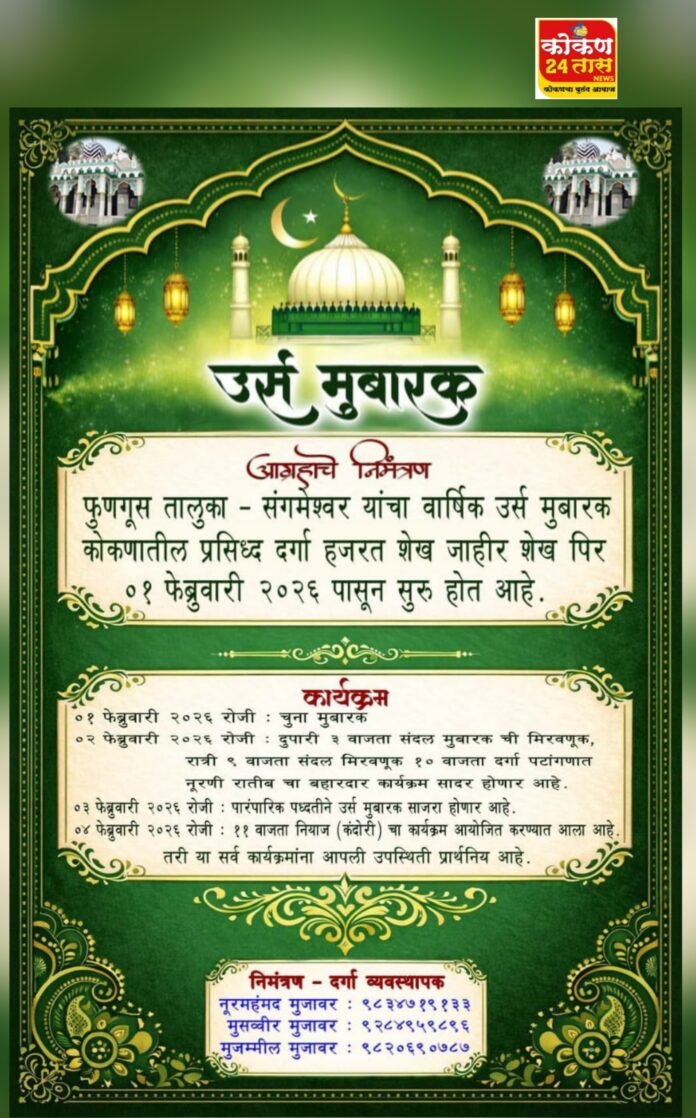 कोकण
24 तास
NEWS
कोकणचा बुलंद आवाज
उर्स मुबारक
आग्रहाचे निमंत्रण
फुणगूस तालुका - संगमेश्वर यांचा वार्षिक उर्स मुबारक
कोकणातील प्रसिध्द दर्गा हजरत शेख जाहीर शेख पिर
०१ फेब्रुवारी २०२६ पासून सुरु होत आहे.
कार्यक्रम
०१ फेब्रुवारी २०२६ रोजी : चुना मुबारक
०२ फेब्रुवारी २०२६ रोजी : दुपारी ३ वाजता संदल मुबारक ची मिरवणूक,
रात्री ९ वाजता संदल मिरवणूक १० वाजता दर्गा पटांगणात
नूरणी रातीब चा बहारदार कार्यक्रम सादर होणार आहे.
०३ फेब्रुवारी २०२६ रोजी : पारंपारिक पध्दतीने उर्स मुबारक साजरा होणार आहे.
०४ फेब्रुवारी २०२६ रोजी : ११ वाजता नियाज (कंदोरी) चा कार्यक्रम आयोजित करण्यात आला आहे.
तरी या सर्व कार्यक्रमांना आपली उपस्थिती प्रार्थनिय आहे.
निमंत्रण - दर्गा व्यवस्थापक
नूरमहंमद मुजावर : ९८३४७१९१३३
मुसव्वीर मुजावर : ९२८४९५९८९६
मुजम्मील मुजावर : ९८२०६९०७८७